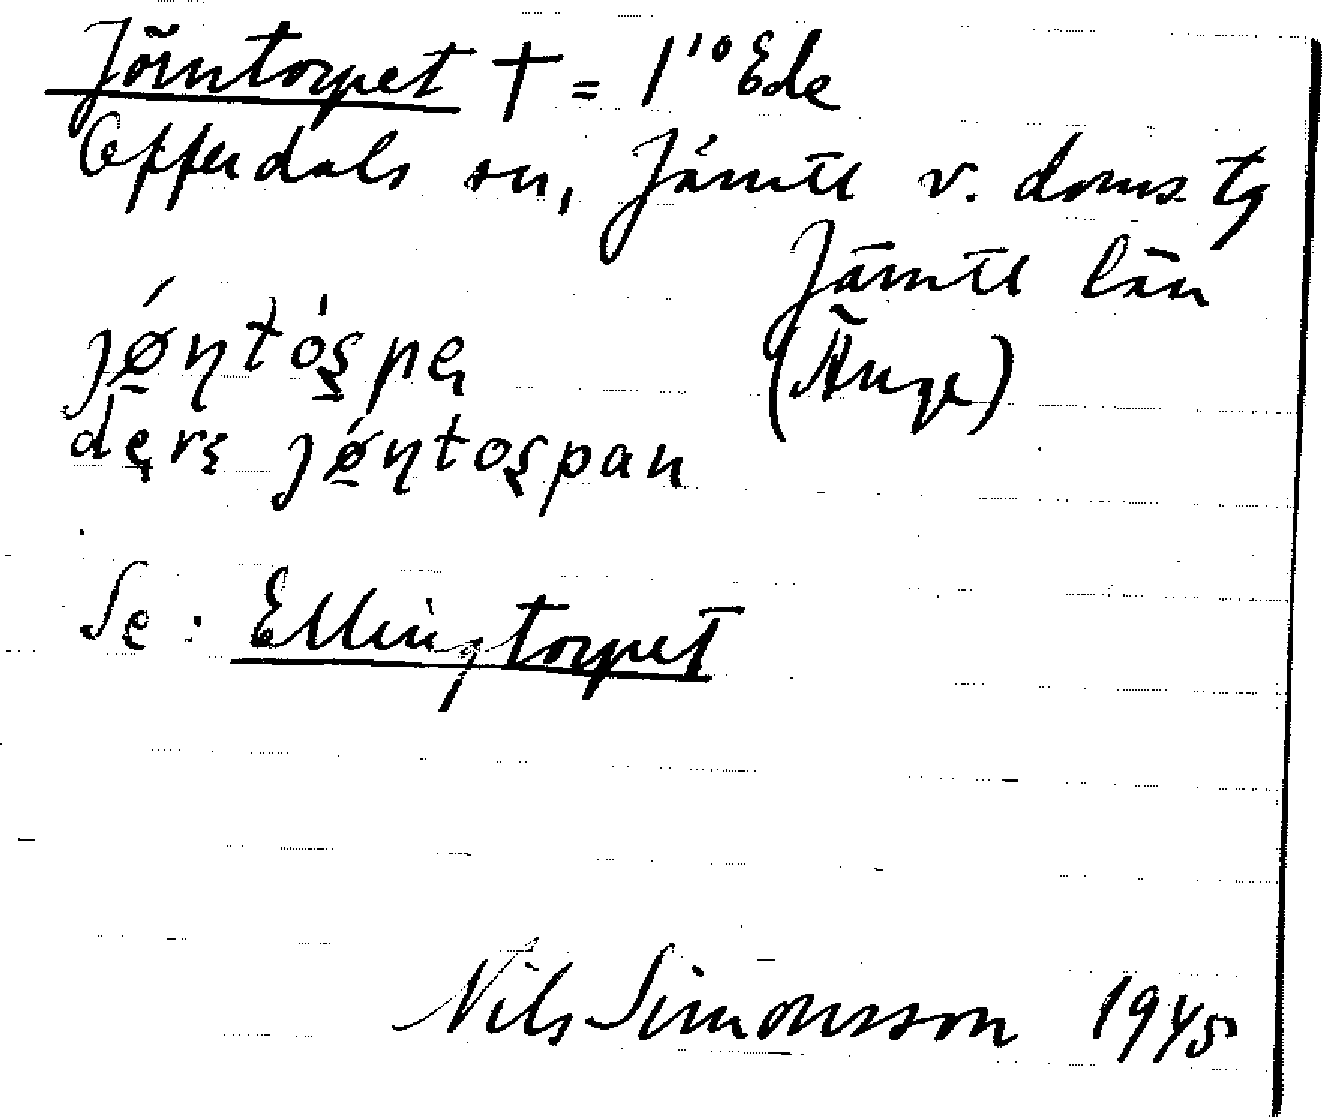 Jörntorpet † = 1¹⁰ Ede
Offerdals sn, Jämtl v. doms tg
Jämtl län
jøntospe (Änge)
ders jøntospan
Se: Ellingtorpet
Nils Simonsson 1945